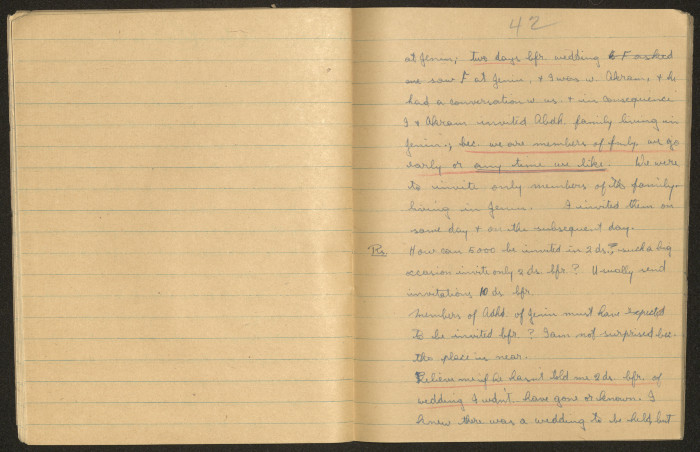 42
at Jenin; two days bfr. wedding F asked
we saw F at Jenin, & I was w. Akram, & he
had a conversation w us & in consequence
I & Akram invited Abdh. family living in
Jenin; bec. we are members of family we go
early or any time we like. We were
to invite only members of the family
living in Jenin. I invited them on
same day & on the subsequent day.
How can 5000 be invited in 2 ds.? such a big
occasion invite only 2 ds. bfr.? Usually send
invitations 10 ds bfr.
Members of Abhd. of Jenin must have expected
to be invited bfr.? I am not surprised bec.
the place is near.
Believe me if he hasn't told me 2 ds. bfr. of
wedding I wdn't have gone or known. I
knew there was a wedding to be held, but